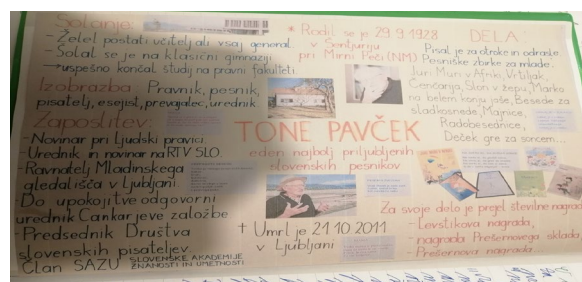 Šolanje:
- Želel postati učitelj ali vsaj general
- Šolal se je na klasični gimnaziji
→ uspešno končal študij na pravni fakulteti
Izobrazba Pravnik, pesnik,
pisatelj, esejist, prevajalec, urednik
Zaposlitev:
- Novinar pri Ljudski pravici.
- Urednik in novinar na RTV SLO.
- Ravnatelj Mladinskega
gledališča v Ljubljani
- Do upokojitve odgovorni
urednik Cankarjeve založbe
- Predsednik Društva
slovenskih pisateljev
Član SAZU SLOVENSKE AKADEMIJE
ZNANOSTI IN UMETNOSTI
* Rodil se je 29.9.1928
v Šentjuriju
pri Mirni Peči (NM)
TONE PAVČEK
eden najbolj priljubljenih
slovenskih pesnikov
† Umrl je 21.10.2011
v Ljubljani
DELA
Pisal je za otroke in odrasle
Pesniške zbirke za mlade:
Juri Muri v Afriki, Vrtiljak,
Čenčarija, Slon v žepu, Marko
na belem konju jaše, Besede za
sladkosnede, Majnice,
Radobesednice,
Deček gre za soncem...
Za svoje delo je prejel številne nagrade
- Levstikova nagrada,
- nagrada Prešernovega sklada
- Prešernova nagrada